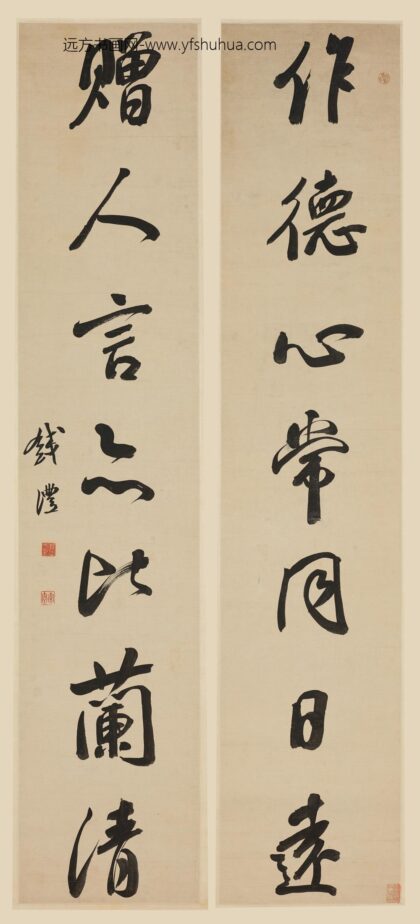 远方书画网-www.yfshuhua.com
作德心常同日遠
贈人言亦比蘭清
錢灃